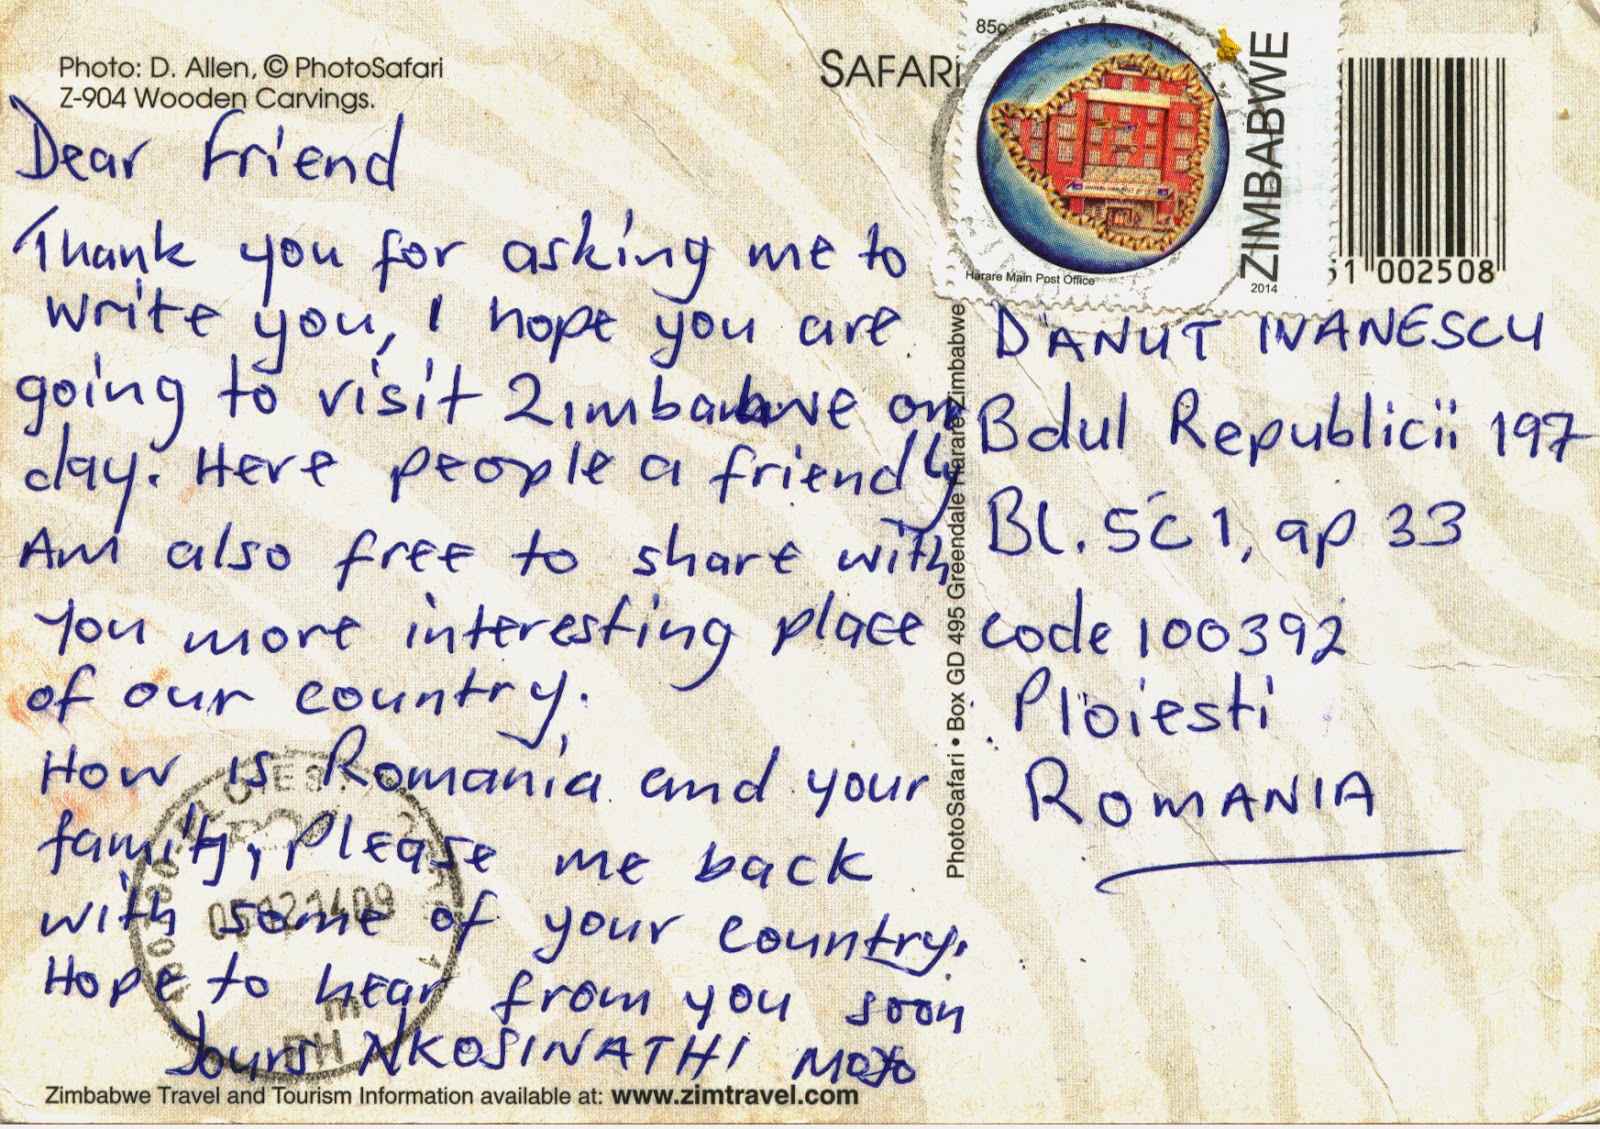 Photo: D. Allen, © PhotoSafari
Z-904 Wooden Carvings.
SAFARI
85c
ZIMBABWE
2014
Harare Main Post Office
51 002508
Dear Friend
Thank you for asking me to
write you, I hope you are
going to visit Zimbabwe on
day. Here people a friendly
Am also free to share with
You more interesting place
of our country.
How is Romania and your
family, Please me back
with some of your country.
Hope to hear from you soon
Yours NKOSINATHI MOYO
DANUT IVANESCU
Bdul Republicii 197
Bl. 5C1, ap 33
code 100392
Ploiesti
ROMANIA
PhotoSafari • Box GD 495 Greendale Harare Zimbabwe
Zimbabwe Travel and Tourism Information available at: www.zimtravel.com